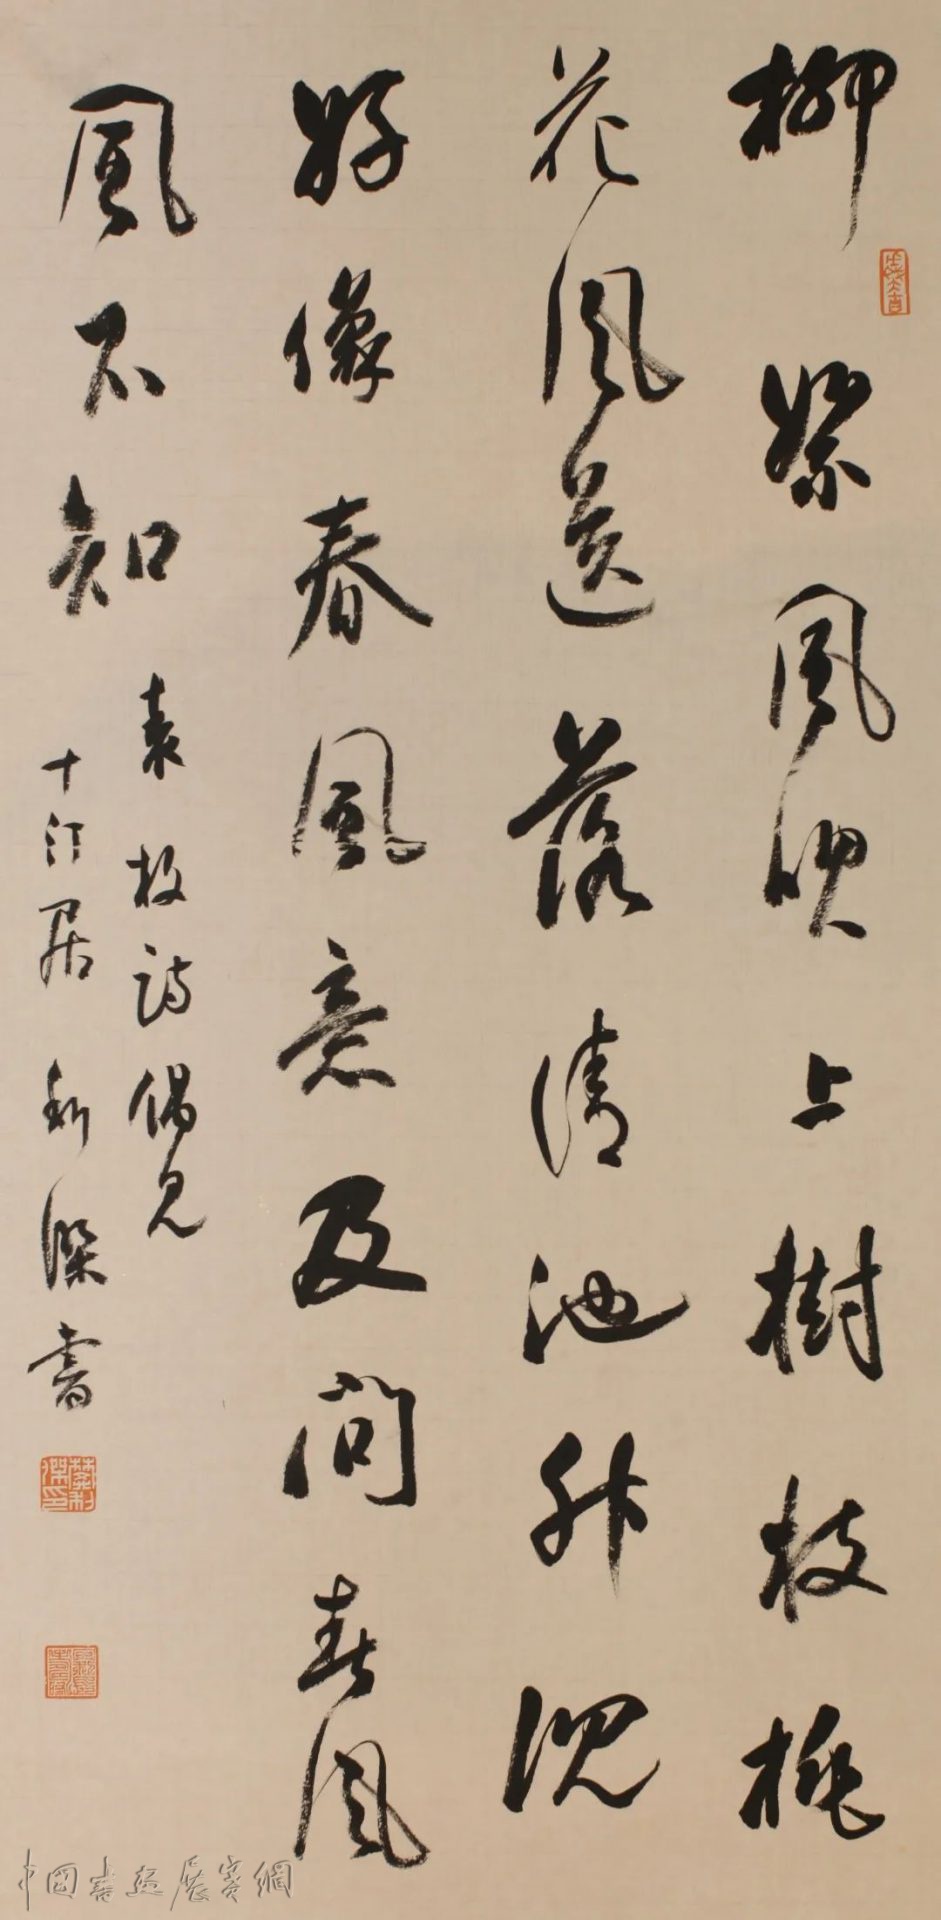 柳絮風吹上樹枝桃
花風送落清池升沉
好像春風意及问春風
風不知
袁枚詩偶見
十汀居利深書
中國書畫展賽網